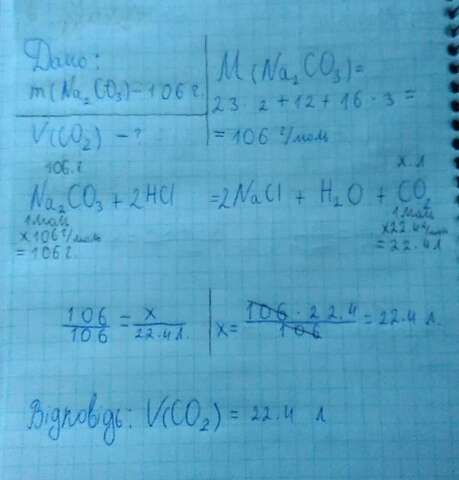 Дано:
m(Na₂CO₃)-106г.
V(CO₂) - ?
M(Na₂CO₃)=
23·2+12+16·3=
=106 г/моль
106.г x л
Na₂CO₃ + 2HCl =2NaCl + H₂O + CO₂
1моль 1моль
x106г/моль x22.4л/моль
=106г. =22.4л
106/106 = x/22.4л. x= 106·22.4/106 = 22.4 л.
Відповідь: V(CO₂) = 22.4 л